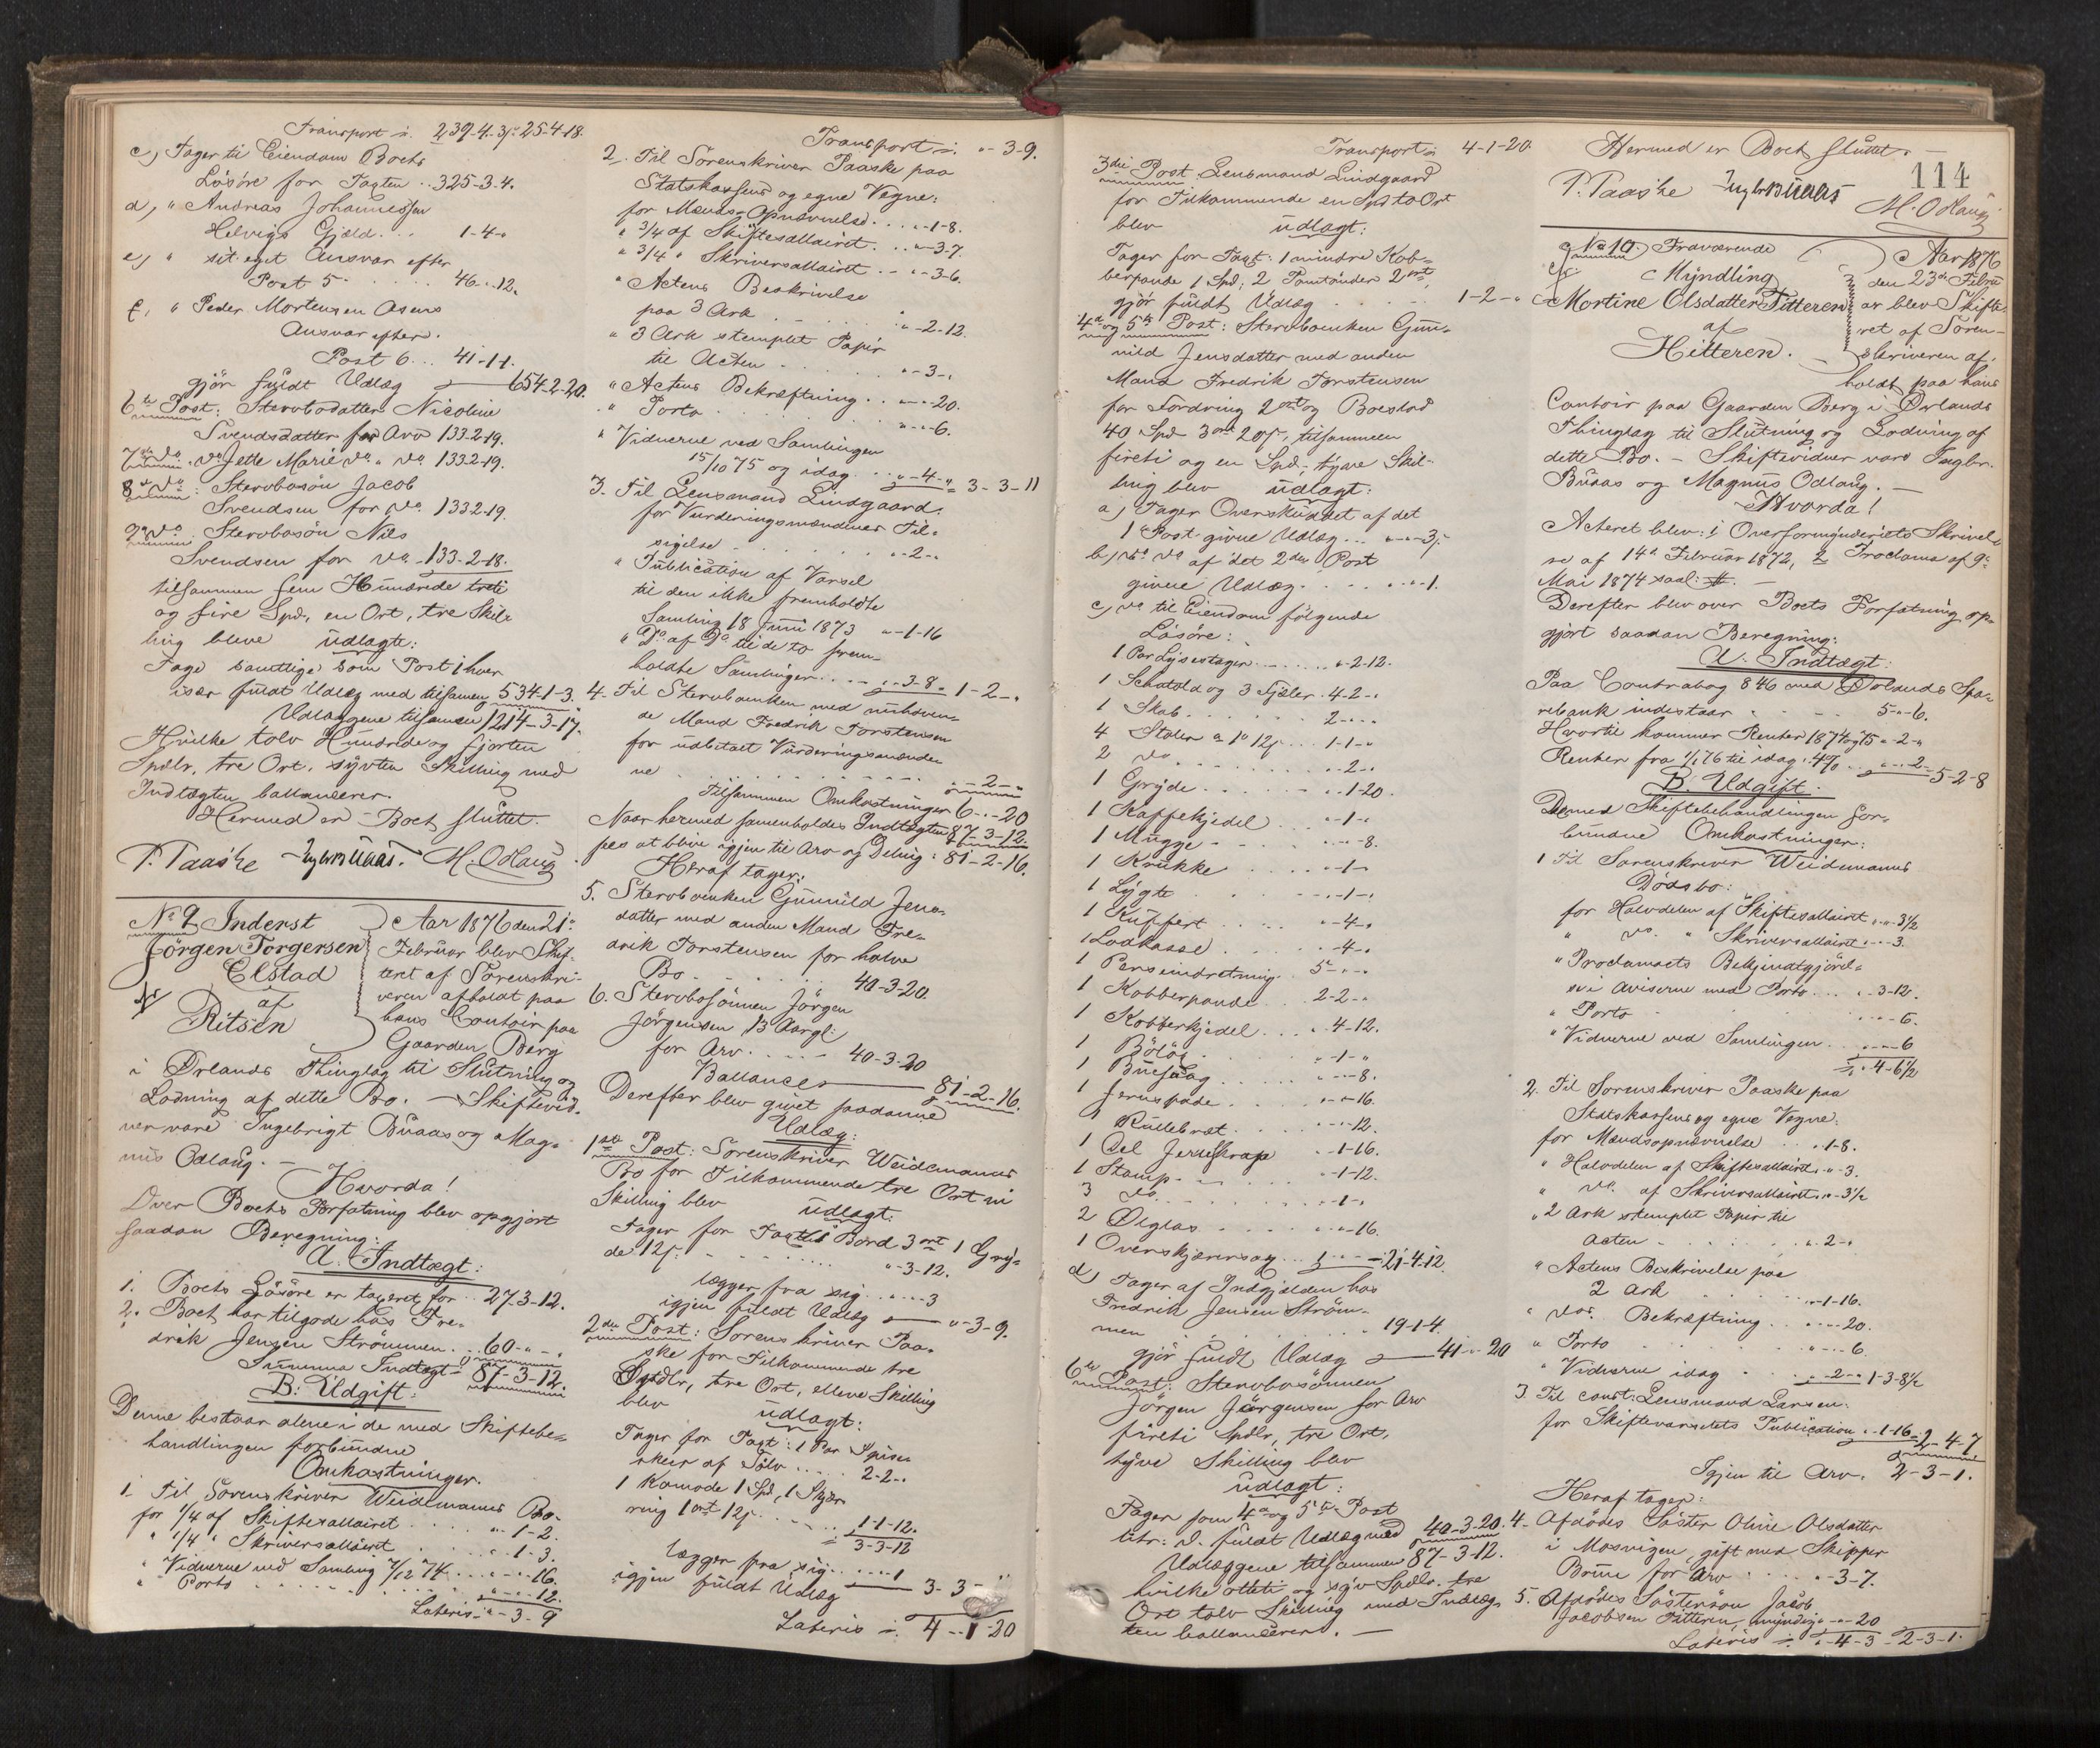 Transport ∻ 239-4-3. 25-4-18.
c, Tager til Eiendom Boets
Lösöre for Taxten .. 325-3-4.
d, " Andreas Johannessen
Helvigs Gjæld . . . 1-4-"
e, " sit eget Ansvar efter
Post 5 . . . . . 46-"-12.
f, " Peder Mortensen Asens
Ansvar efter
Post 6 . . . 41-1-1.
gjör fuldt Udlæg — 654-2-20.
6te Post: Stervbodatter Nicoline
Svendsdatter for Arv 133-2-19.
7de do. do Jette Marie do " do 133-2-19.
8de do: Stervbosön Jacob
Svendsen for do 133-2-19.
9de do: Stervbosön Nils
Svendsen for do 133-2-18.
tilsammen fem Hundrede treti
og fire Spd., en Ort, tre Skil-
ling bleve udlagte:
Tage samtlige som Post 1 hver
især fuldt Udlæg med tilsamen 534-1-3.
Udlæggene tilsamen 1214-3-17.
Hvilke tolv Hundrede og fjorten
Spdlr, tre Ort, sytten Skilling med
Indtægten ballancerer.
Hermed er Boet sluttet.
P. Paaske Ingbr Buaas. M. Odlaug
No 9 Inderst
Jörgen Torgersen
Elstad
af
Ritsen
Aar 1876 den 21de
Februar blev Skif-
teret af Sorenskri-
veren afholdt paa
hans Contoir paa
Gaarden Berg
i Ørlands Thinglag til Slutning og
Lodning af dette Bo. — Skiftevid-
ner vare Ingebrigt Buaas og Mag-
nus Odlaug. —
Hvorda!
Over Boets Forfatning blev opgjort
saadan Beregning:
A. Indtægt:
1. Boets Lösöre er taxeret for .. 27-3-12.
2. Boet har tilgode hos Fre-
drik Jensen Strömmen . . 60-"-"
Summa Indtægt 87-3-12.
B. Udgift:
Denne bestaar alene i de med Skiftebe-
handlingen forbundne
Omkostninger.
1. Til Sorenskriver Weidemanns Bo.
for 1/4 af Skiftesallairet . . . "-1-2.
" 1/4 " Skriversallairet . . . "-1-3.
" Vidnerne ved Samling 7/12 74 . . "-"-16.
" Porto . . . . . "-"-12.
Lateris ∻ "-3-9
Transport ∻ "-3-9.
2. Til Sorenskriver Paaske paa
Statskassens og egne Vegne:
for Mænds-Opnævnelse . . . "-1-8.
" 3/4 af Skiftesallairet . . "-3-7.
" 3/4 " Skriversallairet . . "-3-6.
" Actens Beskrivelse
paa 3 Ark . . . . . "-2-12.
" 3 Ark stemplet Papir
til Acten . . . . . "-3-"
" Actens Bekræftning . . "-"-20.
" Porto . . . . . "-"-6.
" Vidnerne ved Samlingen
15/10 75 og idag . . "-4-" 3-3-11
3. Til Lensmand Lindgaard.
for Vurderingsmændenes Til-
sigelse . . . . . "-2-"
" Publication af Varsel
til den ikke fremholdte
Samling 18 Juni 1873 "-1-16
" Do af Do til de to frem-
holdte Samlinger . . . "-3-8. 1-2-"
4. Til Stervboenken med nuhaven-
de Mand Fredrik Torstensen
for udbetalt Vurderingsmænde-
ne . . . . . "-2-"
Tilsammen Omkostninger 6-"-20
Naar hermed samenholdes Indtægten 87-3-12.
pes at blive igjen til Arv og Deling: 81-2-16.
Heraf tager:
5. Stervboenken Gunnild Jens-
datter med anden Mand Fre-
drik Torstensen for halve
Bo . . . . . 40-3-20.
6. Stervbosönnen Jörgen
Jörgensen 13 Aar gl:
for Arv . . . . 40-3-20
Ballancer — 81-2-16.
Derefter blev givet saadanne
Udlæg:
1ste Post: Sorenskriver Weidemanns
Bo for Tilkommende tre Ort ni
Skilling blev udlagt:
Tager for Taxt 1 Bord 3 ort 1 Gry-
de 12 s. . . . . . "-3-12.
lægger fra sig . . "-"-3
igjen fuldt Udlæg — "-3-9.
2den Post: Sorenskriver Paa-
ske for Tilkommende tre
Spdlr, tre Ort, elleve Skilling
blev udlagt:
Tager for Taxt: 1 Par Spise-
skeer af Sölv . . . . 2-2-"
1 Komode 1 Spd, 1 Skjæ-
ring 1 ort 12 s. . . . 1-1-12.
3-3-12
lægger fra sig . . "-"-1
igjen fuldt Udlæg — 3-3-
Lateris ∻ 4-1-20
Transport ∻ 4-1-20.
3die Post Lensmand Lindgaard
for Tilkommende en Spd to Ort
blev udlagt:
Tager for Taxt: 1 mindre Kob-
berpande 1 Spd; 2 Pamtönder 2 ort,
gjör fuldt Udlæg . . . . . 1-2-"
4de og 5te Post: Stervboenken Gun-
nild Jensdatter med anden
Mand Fredrik Torstensen
for Fordring 2 ort og Boeslod
40 Spd 3 ort 20 s., tilsammen
firti og en Spd, tyve Skil-
ling blev udlagt:
a, Tager Overskuddet af det
1ste Post givne Udlæg ... "-"-3.
b, do do af det 2den Post
givne Udlæg . . . . "-"-1.
c, do til Eiendom følgende
Lösöre:
1 Par Lysestager . . . . "-2-12.
1 Schatold og 3 Fjæler . 4-2-"
1 Skab . . . . . 2-"-"
4 Stoler a 1 ort 12 s. . . . 1-1-"
2 do . . . . . "-2-"
1 Gryde . . . . . "-1-20.
1 Kaffekjedel . . . "-1-"
1 Mugge . . . . "-"-8.
1 Krukke . . . . "-1-"
1 Lygte . . . . "-1-"
1 Kuffert . . . . "-4-"
1 Lodkasse . . . . "-4-"
1 Perseindretning . . 5-"-"
1 Kobberpande . . . 2-2-"
1 Kobberkjedel . . . "-4-12.
1 Bölög . . . . "-1-"
1 Buesag . . . . "-"-8.
1 Jernspade . . . . "-"-16.
1 Rullebræt . . . . "-"-12.
1 Del Jernskrap . . "-1-16.
1 Stamp . . . . "-1-12.
3 do . . . . "-1-"
2 Ølglas . . . . "-"-16.
1 Overskjærersag . . 1-"-" 21-4-12.
d, Tager af Indgjælden hos
Fredrik Jensen Ström-
men . . . . . . 19-1-4.
gjör fuldt Udlæg — 41-"-20
6te Post: Stervbosönnen
Jörgen Jörgensen for Arv
firti Spdlr, tre Ort,
tyve Skilling blev
udlagt:
Tager som 4de og 5te Post
litr: d. fuldt Udlæg med 40-3-20.
Udlæggene tilsammen 87-3-12.
hvilke otteti og syv Spdlr. tre
Ort tolv Skilling med Indtæg-
ten ballancerer. —
Hermed er Boet sluttet. —
114
P. Paaske Ingbr Buaas M. Odlaug
No 10. Fraværende
Myndling
Mortine Olsdatter Fitteren
af
Hitteren.
Aar 1876
den 23de Febru-
ar blev Skifte-
ret af Soren-
skriveren af-
holdt paa hans
Contoir paa Gaarden Berg i Ørlands
Thinglag til Slutning og Lodning af
dette Bo. — Skiftevidner vare Ingbr.
Buaas og Magnus Odlaug. —
Hvorda!
Acteret blev: 1 Overformynderiets Skrivel-
se af 14de Februar 1872, 2 Proclama af 9de
Mai 1874 saal: —
Derefter blev over Boets Forfatning op-
gjort saadan Beregning:
A. Indtægt:
Paa Contrabog 846 med Ørlands Spa-
rebank indestaar . . . . 5-"-6.
Hvortil kommer Renter 1874 og 75 "-2-"
Renter fra 1/1 76 til idag 4% . . "-"-2 5-2-8
B. Udgift.
De med Skiftebehandlingen for-
bundne Omkostninger:
1 Til Sorenskriver Weidemanns
Dödsbo:
for Halvdelen af Skiftesallairet "-"-3½
" do. " Skriversallairet "-"-3.
" Proclamaets Bekjendtgjörel-
se i Aviserne med Porto . . . "-3-12.
" Porto . . . . "-"-6.
" Vidnerne ved Samlingen . . "-"-6
∻ "-4-6½
2. Til Sorenskriver Paaske paa
Statskassens og egne Vegne:
for Mændsopnævnelse . . "-1-8.
" Halvdelen af Skiftesallairet "-"-3.
" do. af Skriversallairet "-"-3½
" 2 Ark stemplet Papir til
Acten . . . . . "-2-"
" Actens Beskrivelse paa
2 Ark . . . . "-1-16.
" dos. Bekræftning . . "-"-20.
" Porto . . . . "-"-6.
" Vidnerne idag . . "-2-" 1-3-8½
3 Til const: Lensmand Larsen:
for Skiftevarselets Publication "-1-16 2-4-7
Igjen til Arv. 2-3-1.
Heraf tager:
4. Afdödes Söster Oline Olsdatter
i Mosvigen, gift med Skipper
Bruun for Arv . . . "-3-7.
5. Afdödes Söstersön Jacob
Jacobsen Fitteren, myndig "-"-20
Lateris ∻ "-4-3 2-3-1.